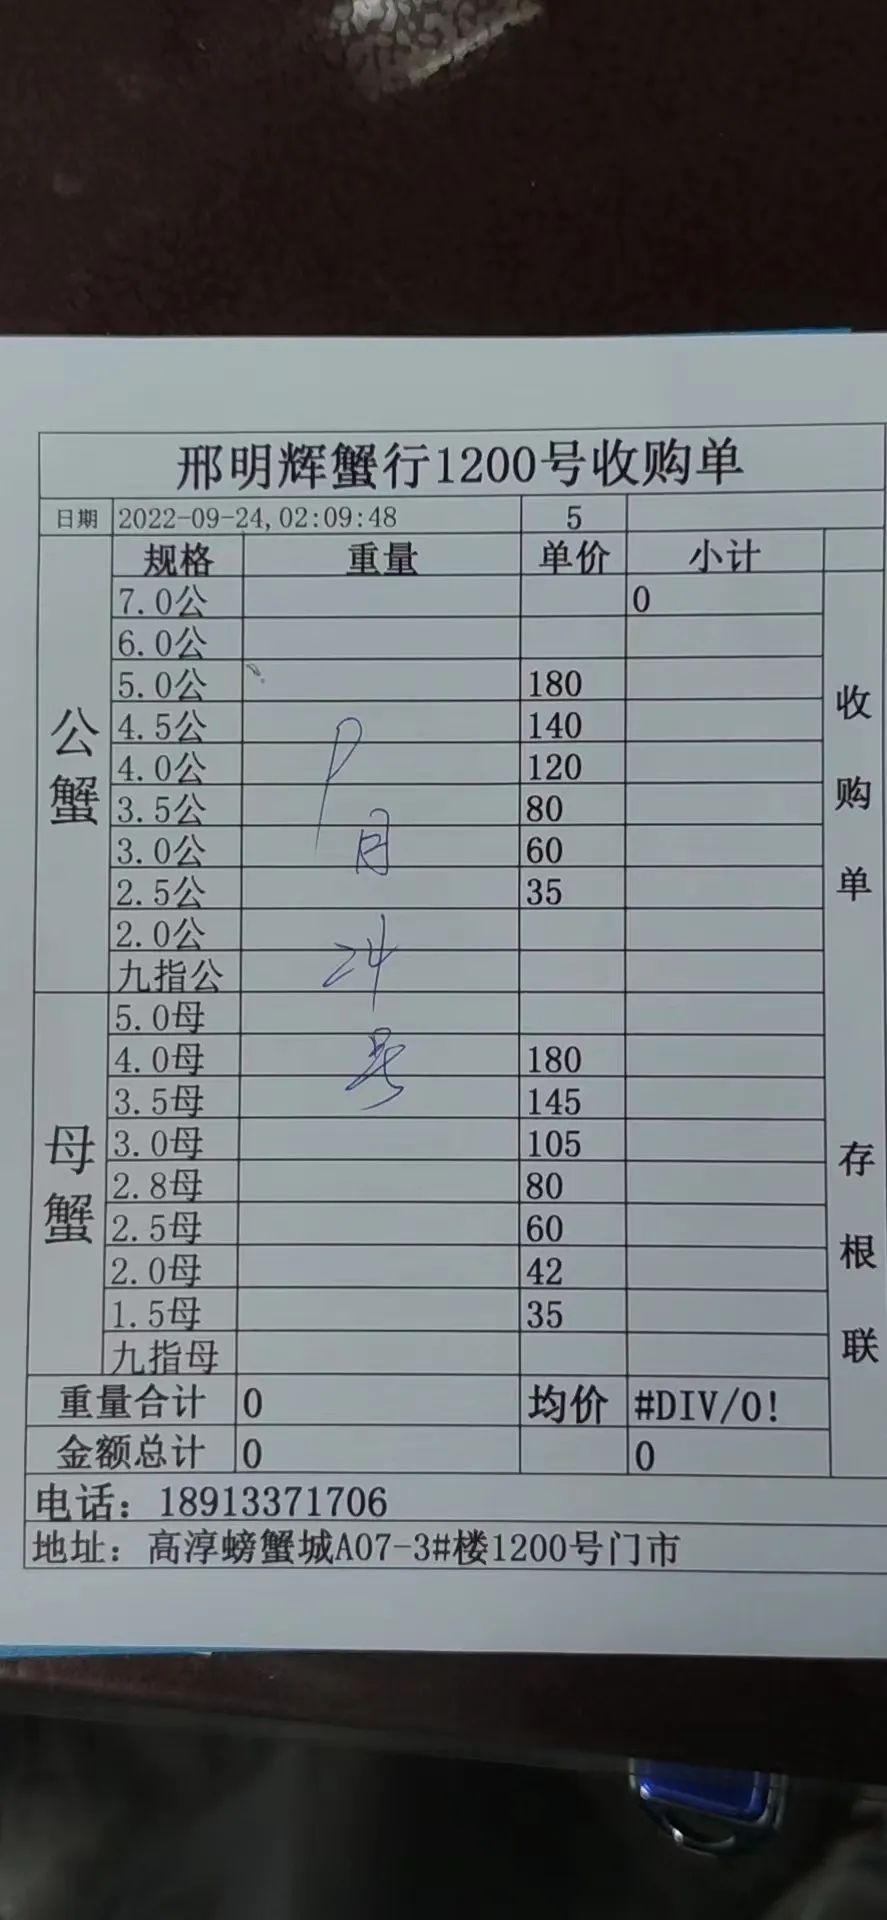 邢明辉蟹行1200号收购单
日期 2022-09-24,02:09:48 5
规格 重量 单价 小计
公蟹
7.0公 0
6.0公
5.0公 180
4.5公 140
4.0公 120
3.5公 80
3.0公 60
2.5公 35
2.0公
九指公
月
24
号
母蟹
5.0母
4.0母 180
3.5母 145
3.0母 105
2.8母 80
2.5母 60
2.0母 42
1.5母 35
九指母
收购单 存根联
重量合计 0 均价 #DIV/0!
金额总计 0 0
电话：18913371706
地址：高淳螃蟹城A07-3#楼1200号门市